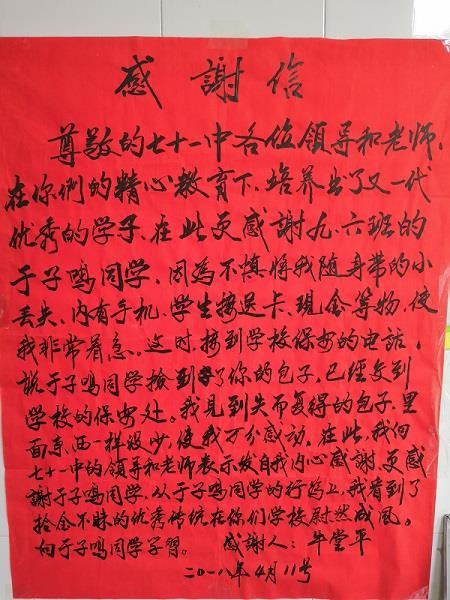 感謝信
尊敬的七十一中各位領导和老师,
在你們的精心教育下,培养出了又一代
优秀的学子,在此更感謝九.六班的
于子鸣同学,因為不慎将我随身带的小
丢失、内有手机、学生接送卡、现金等物,使
我非常着急。这时,接到学校保安的电話,
說于子鸣同学撿到了你的包子,已經交到
学校的保安处。我見到失而复得的包子,里
面东西一样没少,使我万分感动。在此,我向
七十一中的領导和老师表示发自我内心感謝,更感
謝于子鸣同学,从于子鸣同学的行為上,我看到了
拾金不昧的优秀传统在你们学校蔚然成風。
向于子鸣同学学習。 感謝人:牛堂平
二〇一八年4月11号